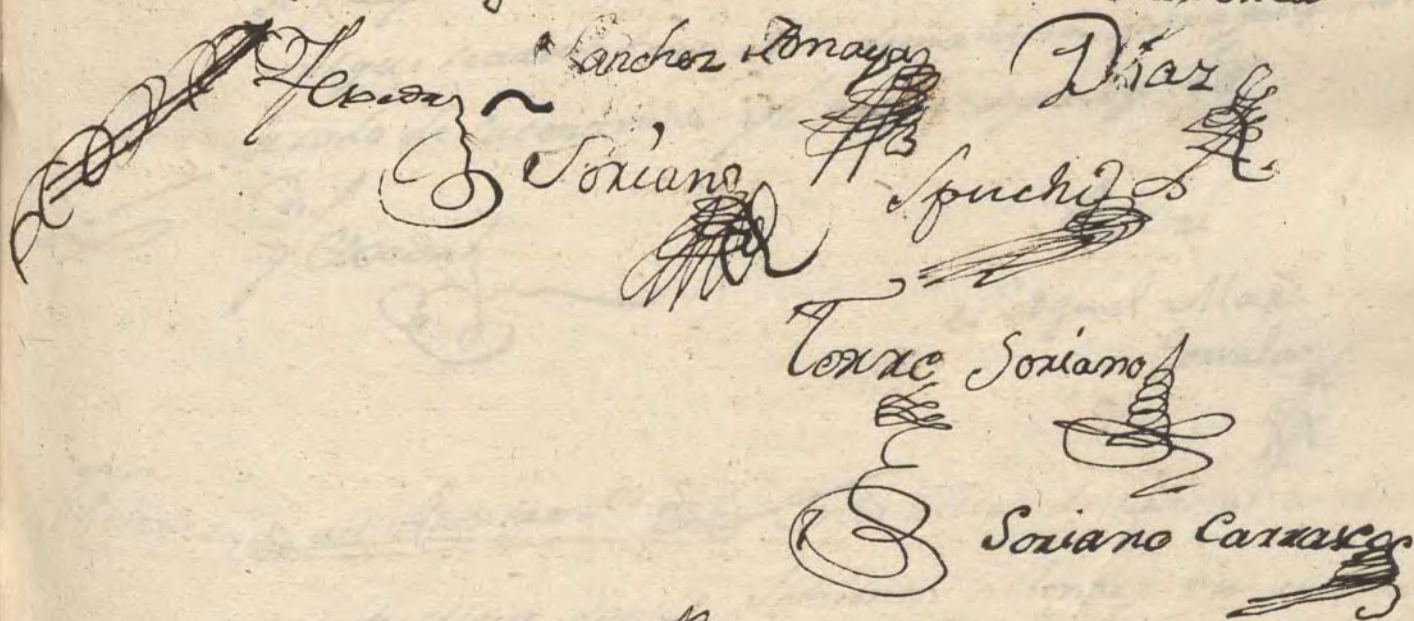 Sanchez Amaya Díaz
Soriano Spuche
Torre Soriano
Soriano Carrasco